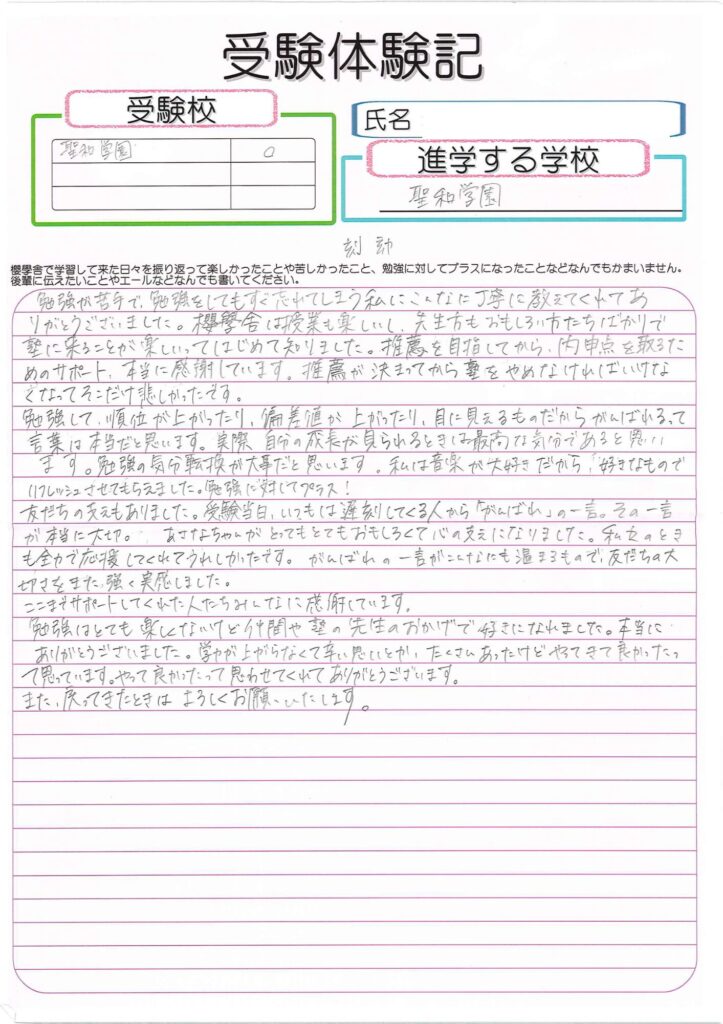 受験体験記
受験校
聖和学園 ○
氏名
進学する学校
聖和学園
櫻學舎で学習して来た日々を振り返って楽しかったことや苦しかったこと、勉強に対してプラスになったことなどなんでもかまいません。
後輩に伝えたいことやエールなどなんでも書いてください。
勉強が苦手で、勉強をしてもすぐ忘れてしまう私にこんなに丁寧に教えてくれてあ
りがとうございました。櫻學舎は授業も楽しいし、先生方もおもしろい方たちばかりで
塾に来ることが楽しいってはじめて知りました。推薦を目指してから、内申点を取るた
めのサポート、本当に感謝しています。推薦が決まってから塾をやめなければいけな
くなってそこだけ悲しかったです。
勉強して、順位が上がったり、偏差値が上がったり、目に見えるものだからがんばれるって
言葉は本当だと思います。実際、自分の成長が見られるときは最高な気分であると思い
ます。勉強の気分転換が大事だと思います。私は音楽が大好きだから、好きなもので
リフレッシュさせてもらえました。勉強に対してプラス!
友だちの支えもありました。受験当日、いつもは遅刻してくる人から「がんばれ」の一言。その一言
が本当に大切。 あさなちゃんがとってもとてもおもしろくて心の支えになりました。私立のとき
も全力で応援してくれてうれしかったです。 がんばれの一言がこんなにも温まるもので、友だちの大
切さをまた、強く実感しました。
ここまでサポートしてくれた人たちみんなに感謝しています。
勉強はとても楽しくないけど仲間や塾の先生のおかげで好きになれました。本当に
ありがとうございました。学力が上がらなくて辛い思いとか、たくさんあったけどやってきて良かったっ
て思っています。やって良かったって思わせてくれてありがとうございます。
また、戻ってきたときはよろしくお願いいたします。